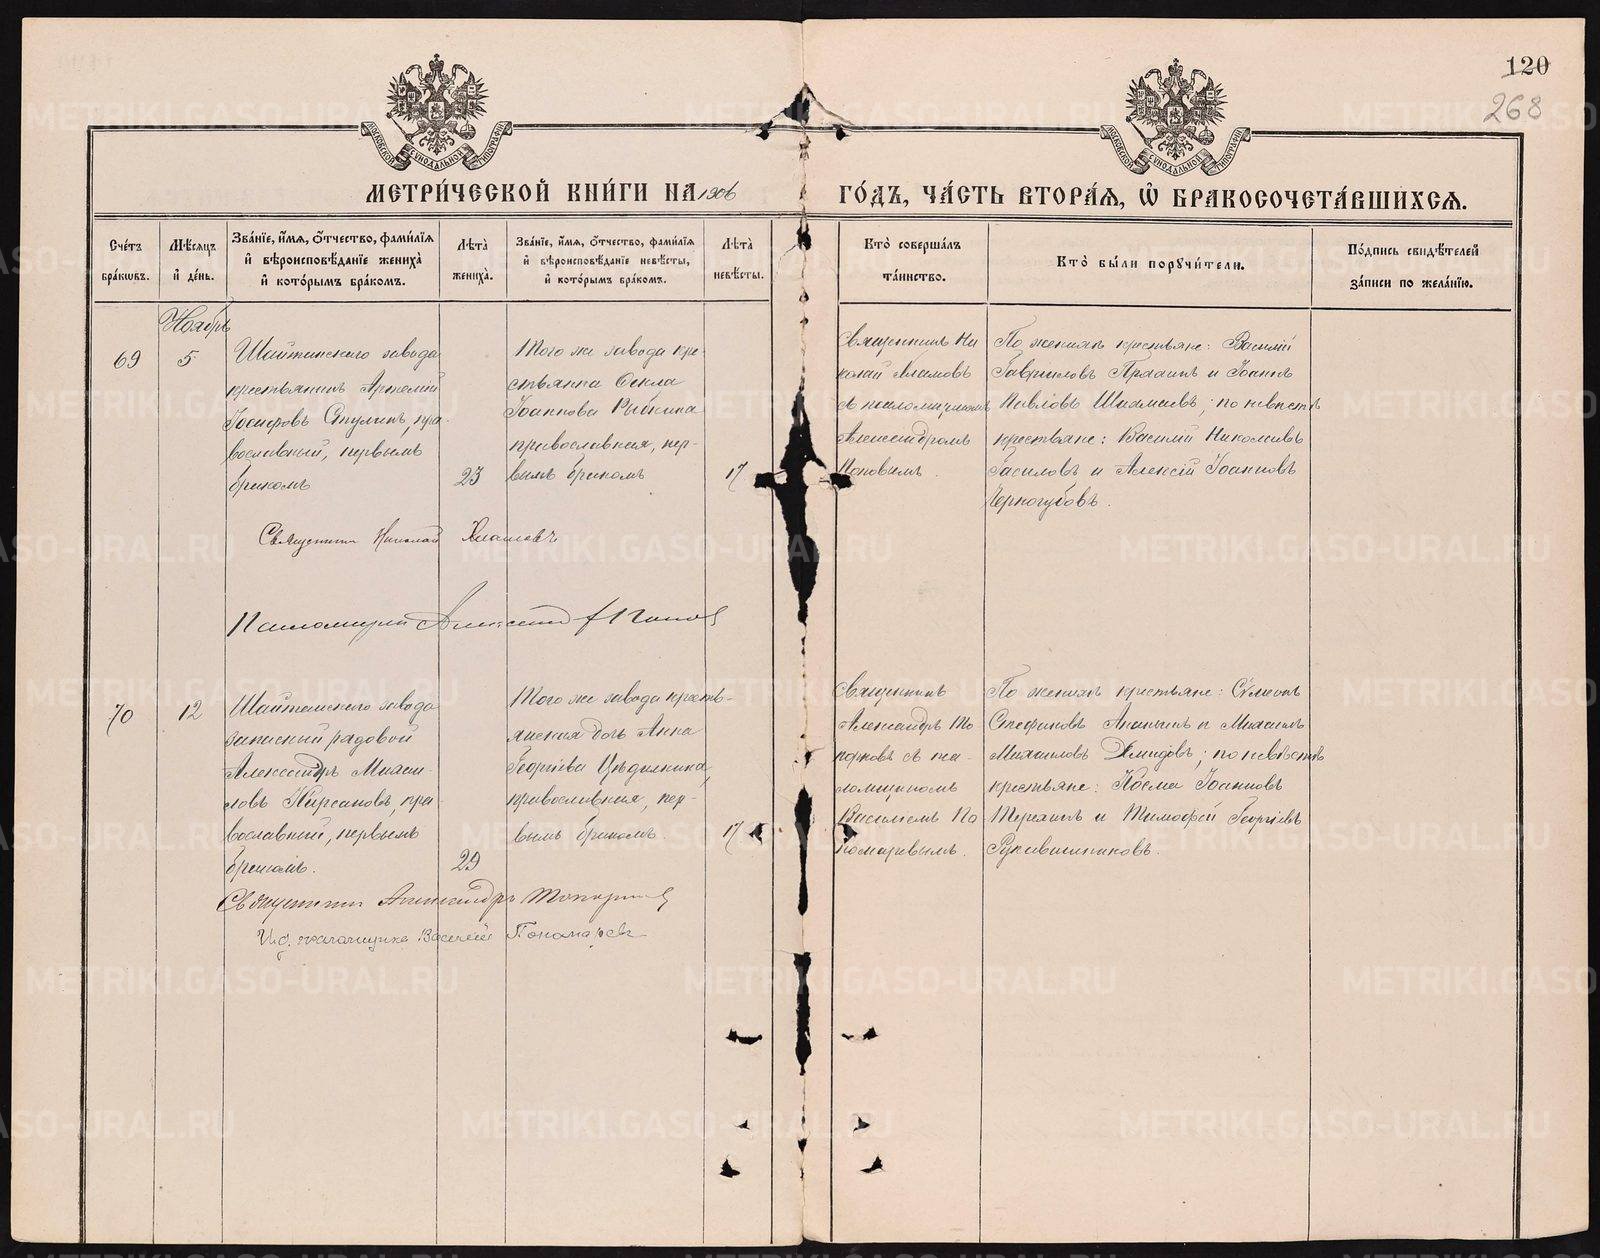 120
268
МЕТРИ́ЧЕСКОЙ КНИ́ГИ НА 1906
ГО́ДЪ, ЧА́СТЬ ВТОРА́Ѧ, Ѡ҆ БРАКОСОЧЕТА́ВШИХСѦ.
Сче́тъ бра́кѡвъ.
Мѣ́сѧцъ и҆ де́нь.
Зва́нїе, и҆́мѧ, ѻ҆́тчество, фами́лїѧ
и҆ вѣроисповѣ́данїе жениха̀
и҆ кото́рымъ бра́комъ.
Лѣта̀ жениха̀.
Зва́нїе, и҆́мѧ, ѻ҆́тчество, фами́лїѧ
и҆ вѣроисповѣ́данїе невѣ́сты,
и҆ кото́рымъ бра́комъ.
Лѣта̀ невѣ́сты.
Кто̀ соверша́лъ
та́инство.
Кто̀ бы́ли порꙋчи́тели.
По́дпись свидѣ́телей
за́писи по жела́нїю.
Ноябрь
69
5
Шайтанскаго завода
крестьянинъ Артемій
Іосифовъ Стулинъ, пра-
вославный, первымъ
бракомъ
23
Того же завода кре-
стьянка Фекла
Іоаннова Рыбкина
православная, пер-
вымъ бракомъ
17
Священникъ Ни
колай Хламовъ
съ псаломщикомъ
Александромъ
Поповымъ.
По женихѣ крестьяне: Василій
Гавриловъ Пряхинъ и Іоаннъ
Павловъ Шахмаевъ; по невѣстѣ
крестьяне: Василій Николаевъ
Гасиловъ и Алексій Іоанновъ
Черногубовъ.
Священникъ Николай Хламовъ
Псаломщикъ Александръ Поповъ
70
12
Шайтанскаго завода
запасный рядовой
Александръ Михаи-
ловъ Кирсановъ, пра-
вославный, первымъ
бракомъ.
29
Того же завода кресть-
янская дочь Анна
Георгіева Цѣдилкина,
православная, пер-
вымъ бракомъ.
17
Священникъ
Александръ То
порковъ съ пса-
ломщикомъ
Василіемъ По
номаревымъ.
По женихѣ крестьяне: Сѵмеонъ
Стефановъ Ананьинъ и Михаилъ
Михаиловъ Демидовъ; по невѣстѣ
крестьяне: Косма Іоанновъ
Терехинъ и Тимофей Георгіевъ
Рукавишниковъ.
Священникъ Александръ Топорковъ
И.д. псаломщика Василій Пономаревъ